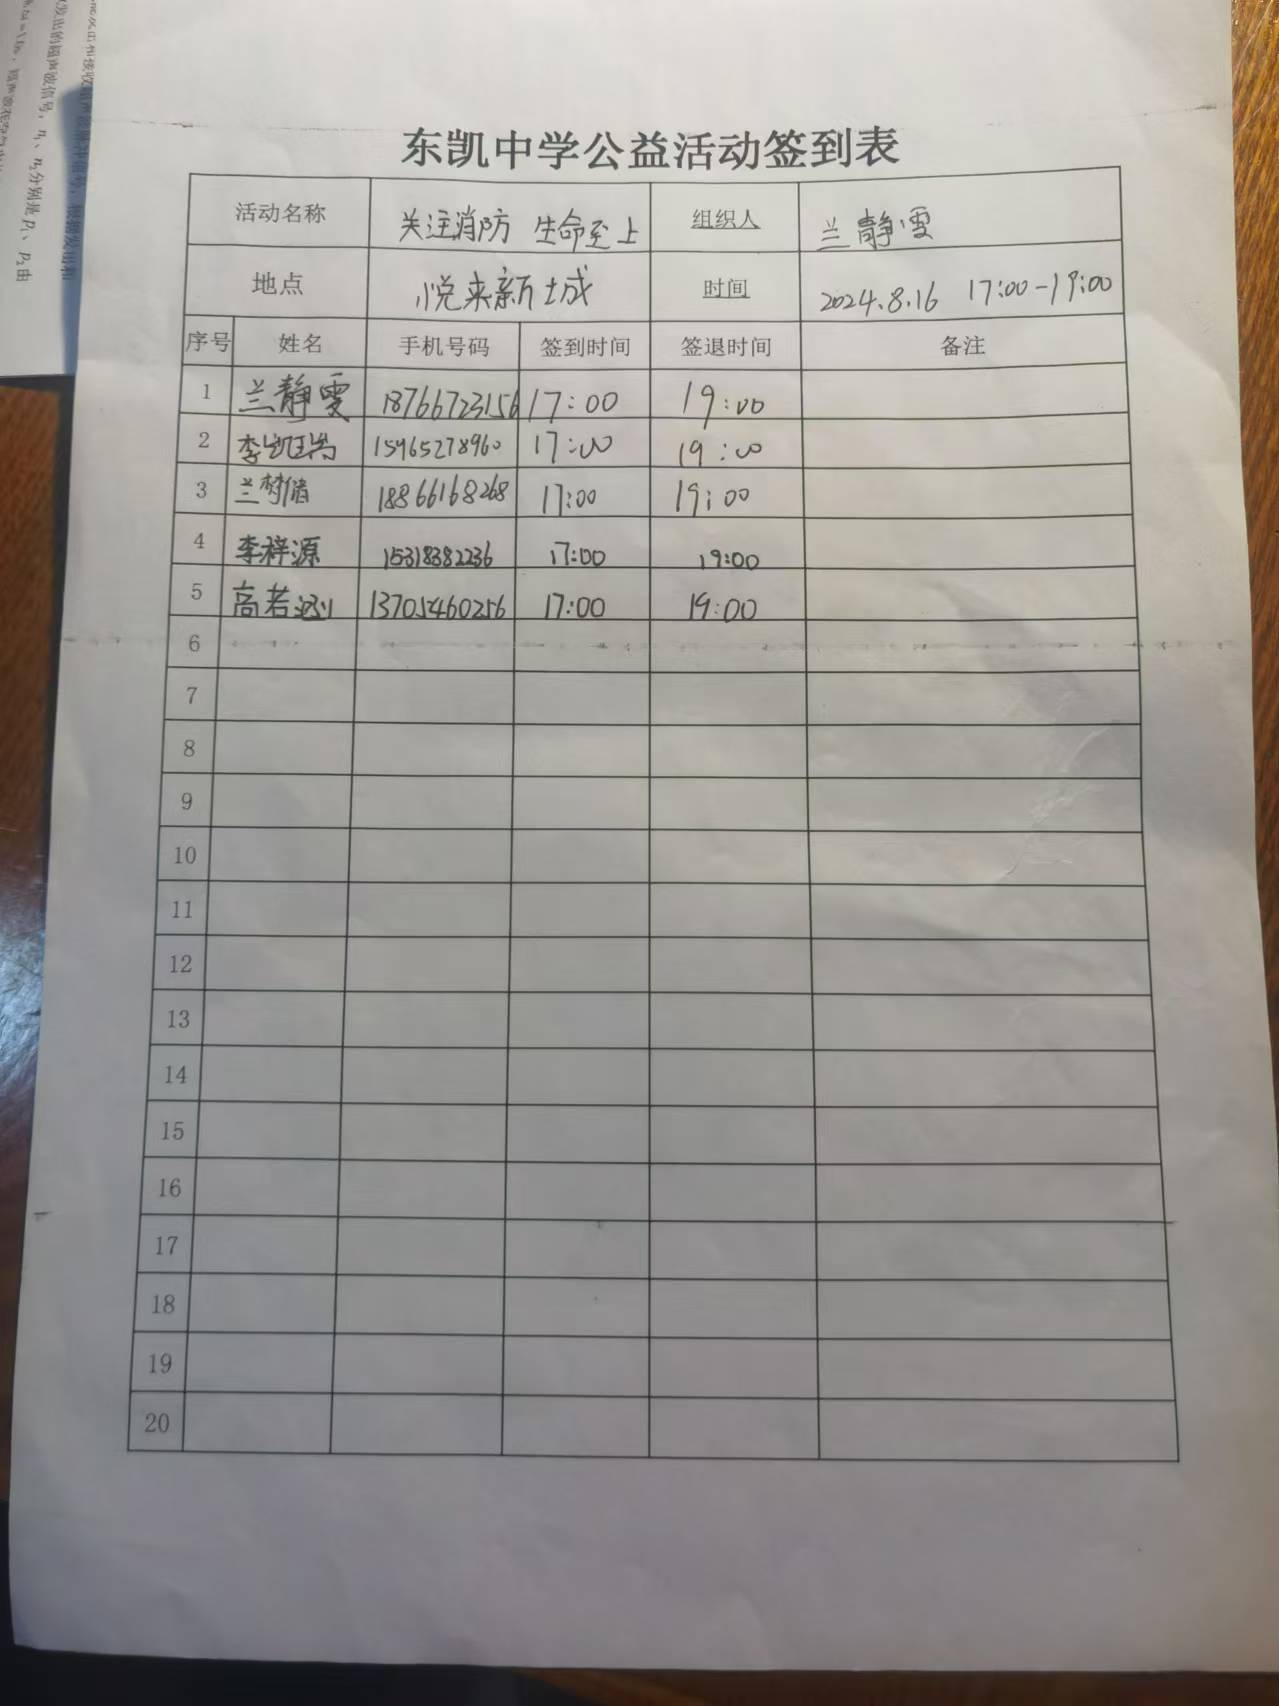 东凯中学公益活动签到表
活动名称 关注消防 生命至上 组织人 兰静雯
地点 悦来新城 时间 2024.8.16 17:00-19:00
序号 姓名 手机号码 签到时间 签退时间 备注
1 兰静雯 18766723156 17:00 19:00
2 15965278960 17:00 19:00
3 兰梦倩 18866168268 17:00 19:00
4 李梓源 15318382236 17:00 19:00
5 高若 13705460256 17:00 19:00
6
7
8
9
10
11
12
13
14
15
16
17
18
19
20